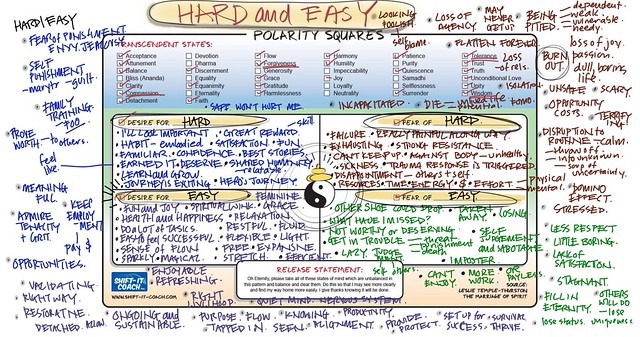 HARD and EASY
POLARITY SQUARES
HARD/EASY
• FEAR OF PUNISHMENT
ENVY. JEALOUSY
• SELF
PUNISHMENT
-martyr -guilt.
• FAMILY
TRAINING
TOO
• PROVE
WORTH → to others.
feel
like
• MEANING
FULL
• ADMIRE
TENACITY
+ GRIT.
• KEEP
EMPLOY
-MENT
PAY $
• OPPORTUNITIES.
• VALIDATING.
• RIGHT WAY.
• RESTORATIVE.
• DETACHED.
TRANSCENDENT STATES:
Acceptance
Attunement
Balance
Bliss (Ananda)
Clarity
Compassion
Detachment
Devotion
Dharma
Discernment
Equality
Equanimity
Expansion
Faith
Flow
Forgiveness
Generosity
Grace
Gratitude
Harmlessness
Harmony
Humility
Impeccability
Joy
Loyalty
Neutrality
Patience
Purity
Receptivity
Service
Surrender
Symbiosis
Tolerance
Trust
Truth
Unconditional Love
Unity
Wisdom
LOOKING
FOOLISH
self
blame.
• LOSS OF
AGENCY.
• MAY
NEVER
GET UP
• BEING
PITIED.
- dependent.
- weak
- vulnerable.
- needy.
• FLATTEN FOREVER
Loss
of rels.
• ISOLATION
BURN
OUT
loss of joy.
passion.
dull, boring,
life.
• UNSAFE
• SCARY.
• OPPORTUNITY
COSTS.
• TERRIFYING
• DISRUPTION to
ROUTINE
- calm.
- thrown off
- into unknown
- loss of
certainty.
• DOMINO
EFFECT.
STRESSED.
• SAFE WON'T HURT ME.
• INCAPACITATED.
• DIE =
DESIRE FOR HARD
- skill
• I'LL LOOK IMPORTANT. • GREAT REWARD.
• HABIT - embodied • SATISFACTION • FUN.
• FAMILIAR. • CONFIDENCE. • BEST STORIES.
• EARNED IT. DESERVE. • SHARED HUMANITY
- relatable
• LEARN and GROW.
• JOURNEY IS EXITING • HERO'S JOURNEY
FEAR OF HARD
• FAILURE • REALLY PAINFUL ALONG WAY.
• EXHAUSTING • STRONG RESISTANCE.
• CAN'T KEEP UP • AGAINST BODY - unhealthy
• SICKNESS • TRAUMA RESPONSE IS TRIGGERED
• DISAPPOINTMENT - others + self
• RESOURCES • TIME • ENERGY • $ • EFFORT -
physical
mental.
DESIRE FOR EASY
FEMININE
• FUN and JOY • SPIRITUAL LIVING • GRACE
• HEALTH and HAPPINESS • RELAXATION
• DO A LOT OF TASKS. • RESTFUL • FLUID.
• EASY to feel SUCCESSFUL • FLEXIBLE • LIGHT
• SENSE OF FLOW • FREE • EXPANSIVE.
• SPARKLY • MAGICAL • STRETCH • EFFICIENT.
FEAR OF EASY
• OTHER SHOE COULD DROP.
• TAKEN
AWAY.
• LOSING
• WHAT HAVE I MISSED?
• NOT WORTHY or DESERVING
• GET IN TROUBLE.
- threat
- punishment
- death
• SELF
JUDGEMENT
and SABOTAGE
• LAZY JUDGE
self others
• IMPOSTER
• CAN'T
ENJOY.
• MORE
WORK
or
PAY LESS.
• LESS RESPECT
• LITTLE BORING.
• LACK OF
SATISFACTION.
• STAGNANT.
• FILL IN
ETERNITY.
• OTHERS
WILL DO
- lose
lose status.
SHIFT-IT
COACH
WWW.SHIFT-IT-COACH.COM
• ENJOYABLE
• REFRESHING.
RELEASE STATEMENT:
Oh Eternity, please take all of these states of mind which are unbalanced in
this pattern and balance and clear them. Do this so that I may see more clearly
and find my way home more easily. I give thanks knowing it will be done.
SOURCE:
LESLIE TEMPLE-THURSTON
THE MARRIAGE OF SPIRIT
• RIGHT
LIVELIHOOD.
• QUIET MIND. NERVOUS SYSTEM.
• ONGOING and
SUSTAINABLE.
• PURPOSE. FLOW. • KNOWING. PRODUCTIVITY.
• TAPPED IN. SEEN. ALIGNMENT. • PROVIDE.
PROTECT.
• SET UP for • SURVIVAL
SUCCESS, THRIVE.